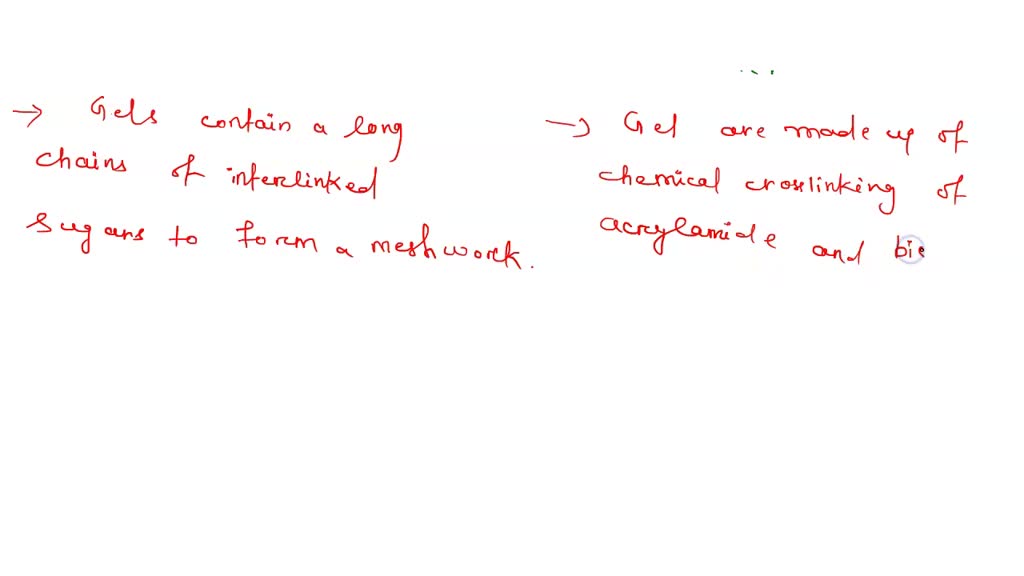 → Gels contain a long
chains of interlinked
sugars to form a meshwork.
→ Gel are made up of
chemical crosslinking of
acrylamide and bis